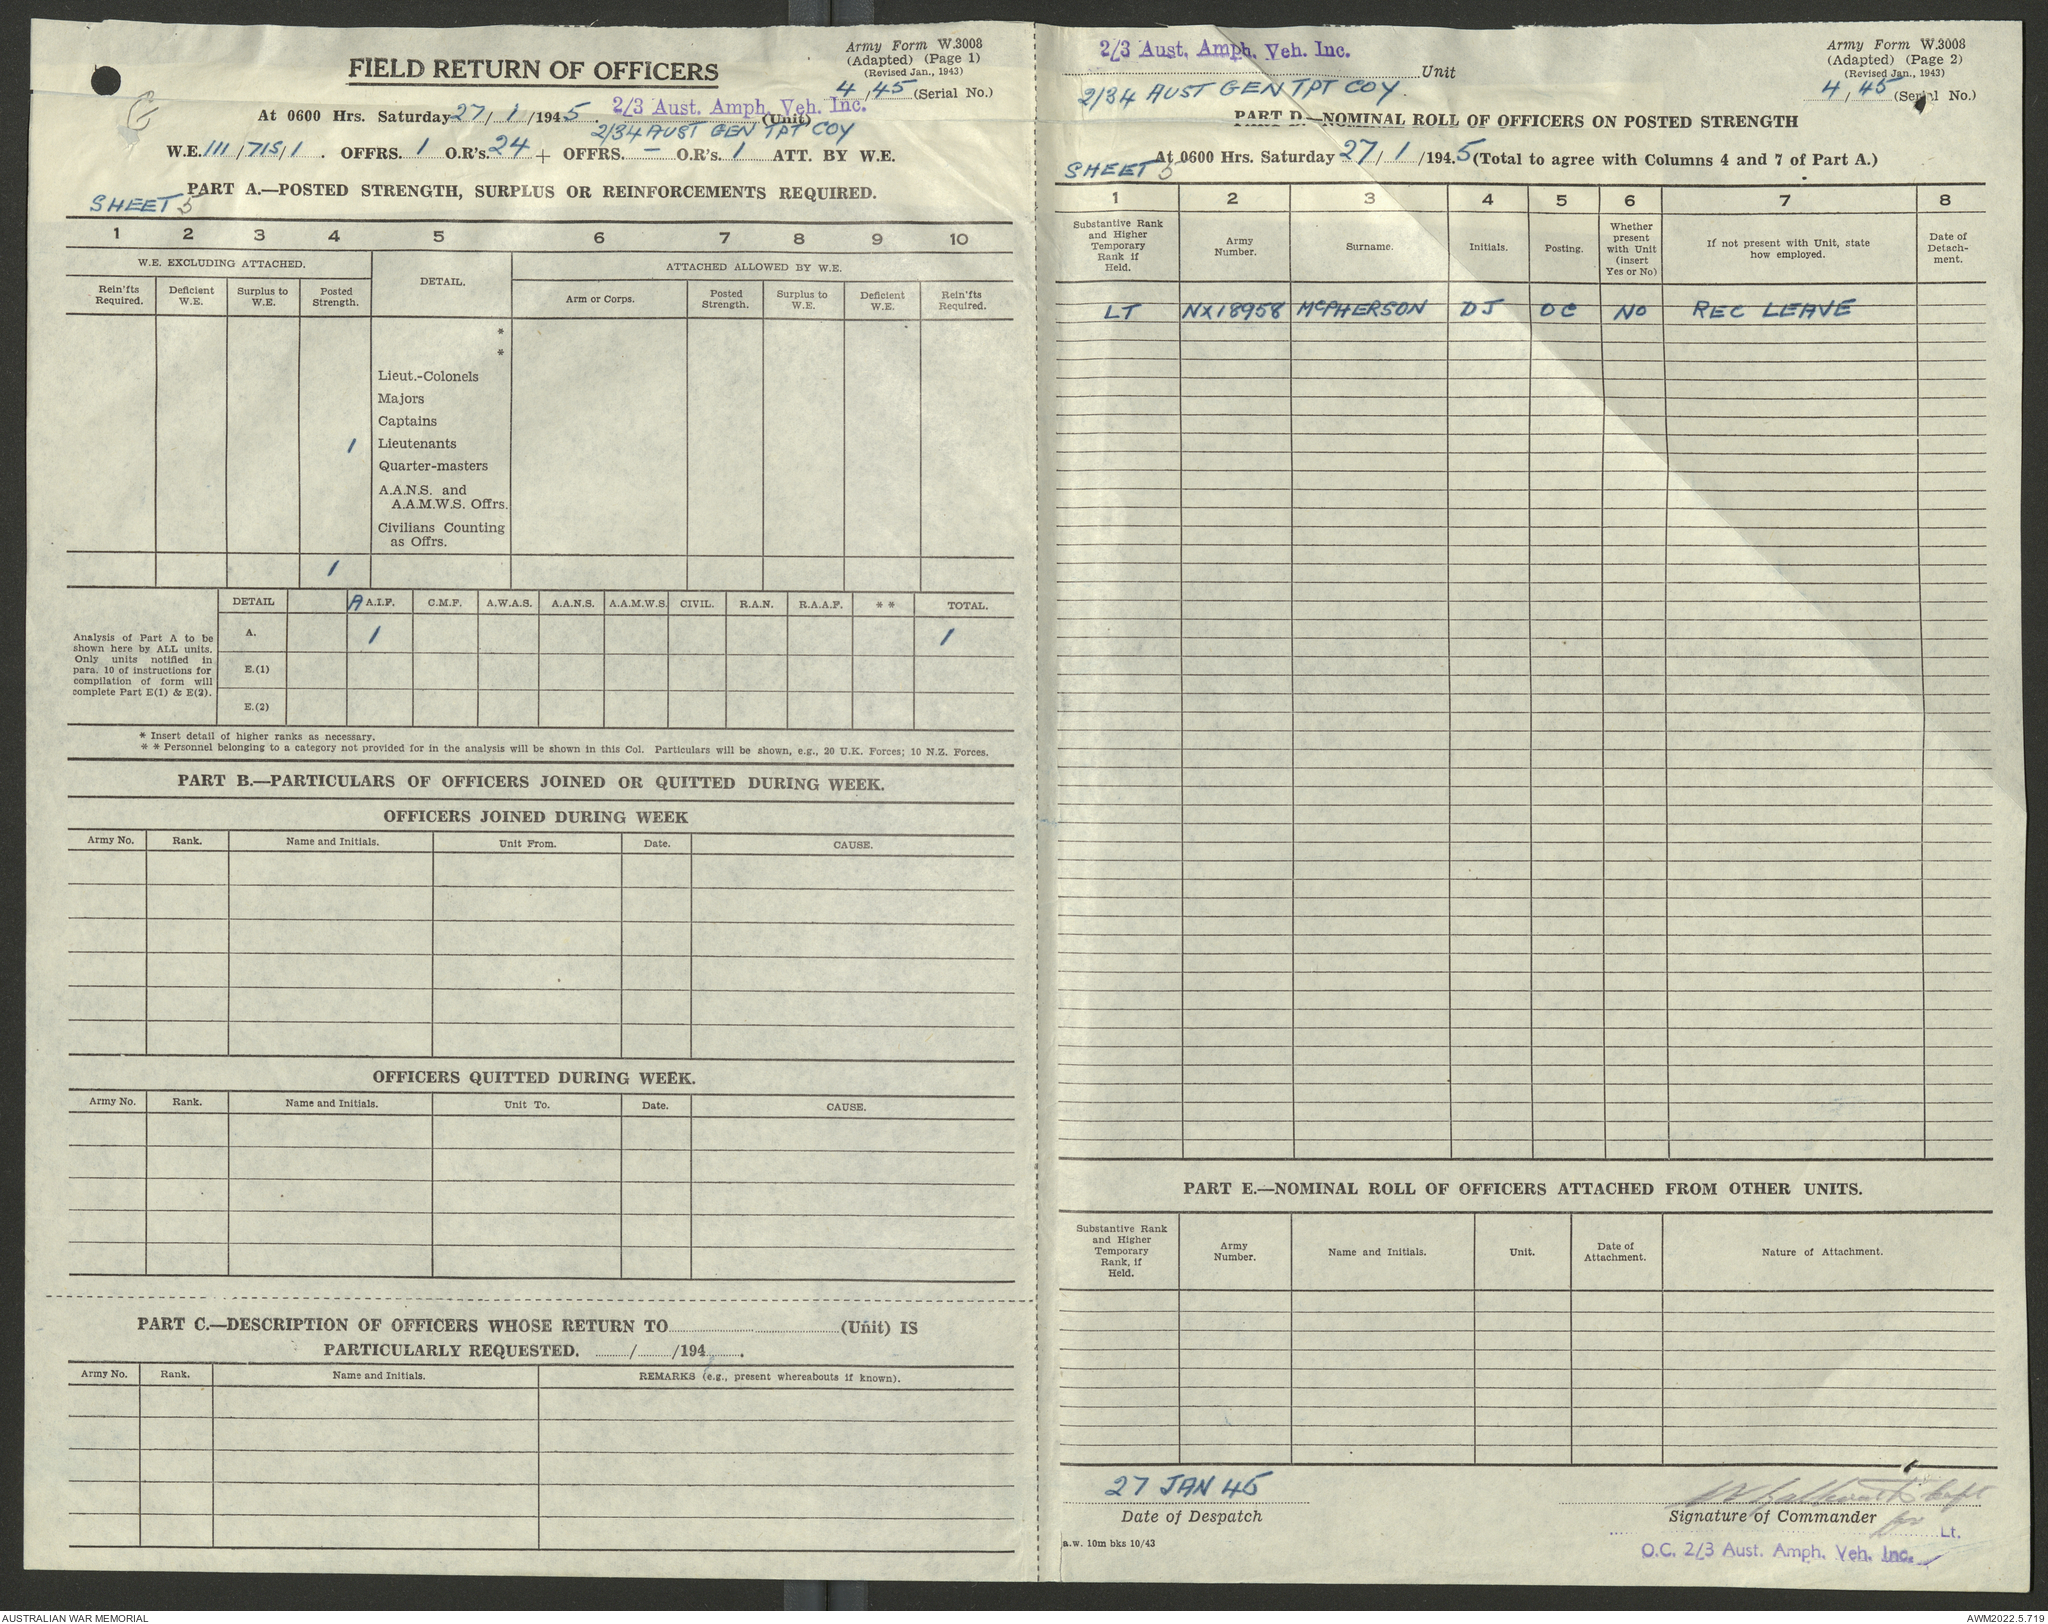 Army Form W.3008
(Adapted) (Page 1)
(Revised Jan., 1943)
FIELD RETURN OF OFFICERS
4/45 (Serial No.)
2/3 Aust. Amph. Veh. Inc.
At 0600 Hrs. Saturday 27/1/1945. (Unit)
2/34 AUST GEN TPT COY
W.E. 111/715/1. OFFRS. 1 O.R's. 24 + OFFRS. — O.R's. 1 ATT. BY W.E.
PART A.—POSTED STRENGTH, SURPLUS OR REINFORCEMENTS REQUIRED.
SHEET 5
1 2 3 4 5 6 7 8 9 10
W.E. EXCLUDING ATTACHED. DETAIL. ATTACHED ALLOWED BY W.E.
Rein'fts Required. Deficient W.E. Surplus to W.E. Posted Strength. Arm or Corps. Posted Strength. Surplus to W.E. Deficient W.E. Rein'fts Required.
*
*
Lieut.-Colonels
Majors
Captains
1 Lieutenants
Quarter-masters
A.A.N.S. and
A.A.M.W.S. Offrs.
Civilians Counting
as Offrs.
1
DETAIL A A.I.F. C.M.F. A.W.A.S. A.A.N.S. A.A.M.W.S. CIVIL. R.A.N. R.A.A.F. * * TOTAL.
A. 1 1
E.(1)
E.(2)
Analysis of Part A to be
shown here by ALL units.
Only units notified in
para. 10 of instructions for
compilation of form will
complete Part E(1) & E(2).
* Insert detail of higher ranks as necessary.
* * Personnel belonging to a category not provided for in the analysis will be shown in this Col. Particulars will be shown, e.g., 20 U.K. Forces; 10 N.Z. Forces.
PART B.—PARTICULARS OF OFFICERS JOINED OR QUITTED DURING WEEK.
OFFICERS JOINED DURING WEEK
Army No. Rank. Name and Initials. Unit From. Date. CAUSE.
OFFICERS QUITTED DURING WEEK.
Army No. Rank. Name and Initials. Unit To. Date. CAUSE.
PART C.—DESCRIPTION OF OFFICERS WHOSE RETURN TO (Unit) IS
PARTICULARLY REQUESTED. / /194 .
Army No. Rank. Name and Initials. REMARKS (e.g., present whereabouts if known).
2/3 Aust. Amph. Veh. Inc.
Unit
2/34 AUST GEN TPT COY.
Army Form W.3008
(Adapted) (Page 2)
(Revised Jan., 1943)
4/45 (Serial No.)
PART D.—NOMINAL ROLL OF OFFICERS ON POSTED STRENGTH
At 0600 Hrs. Saturday 27/1/1945 (Total to agree with Columns 4 and 7 of Part A.)
SHEET 5
1 2 3 4 5 6 7 8
Substantive Rank and Higher Temporary Rank if Held. Army Number. Surname. Initials. Posting. Whether present with Unit (insert Yes or No) If not present with Unit, state how employed. Date of Detach-ment.
LT NX18958 McPHERSON DJ OC NO REC LEAVE
PART E.—NOMINAL ROLL OF OFFICERS ATTACHED FROM OTHER UNITS.
Substantive Rank and Higher Temporary Rank, if Held. Army Number. Name and Initials. Unit. Date of Attachment. Nature of Attachment.
27 JAN 45
Date of Despatch
Signature of Commander
for Lt.
O.C. 2/3 Aust. Amph. Veh. Inc.
a.w. 10m bks 10/43
AUSTRALIAN WAR MEMORIAL
AWM2022.5.719